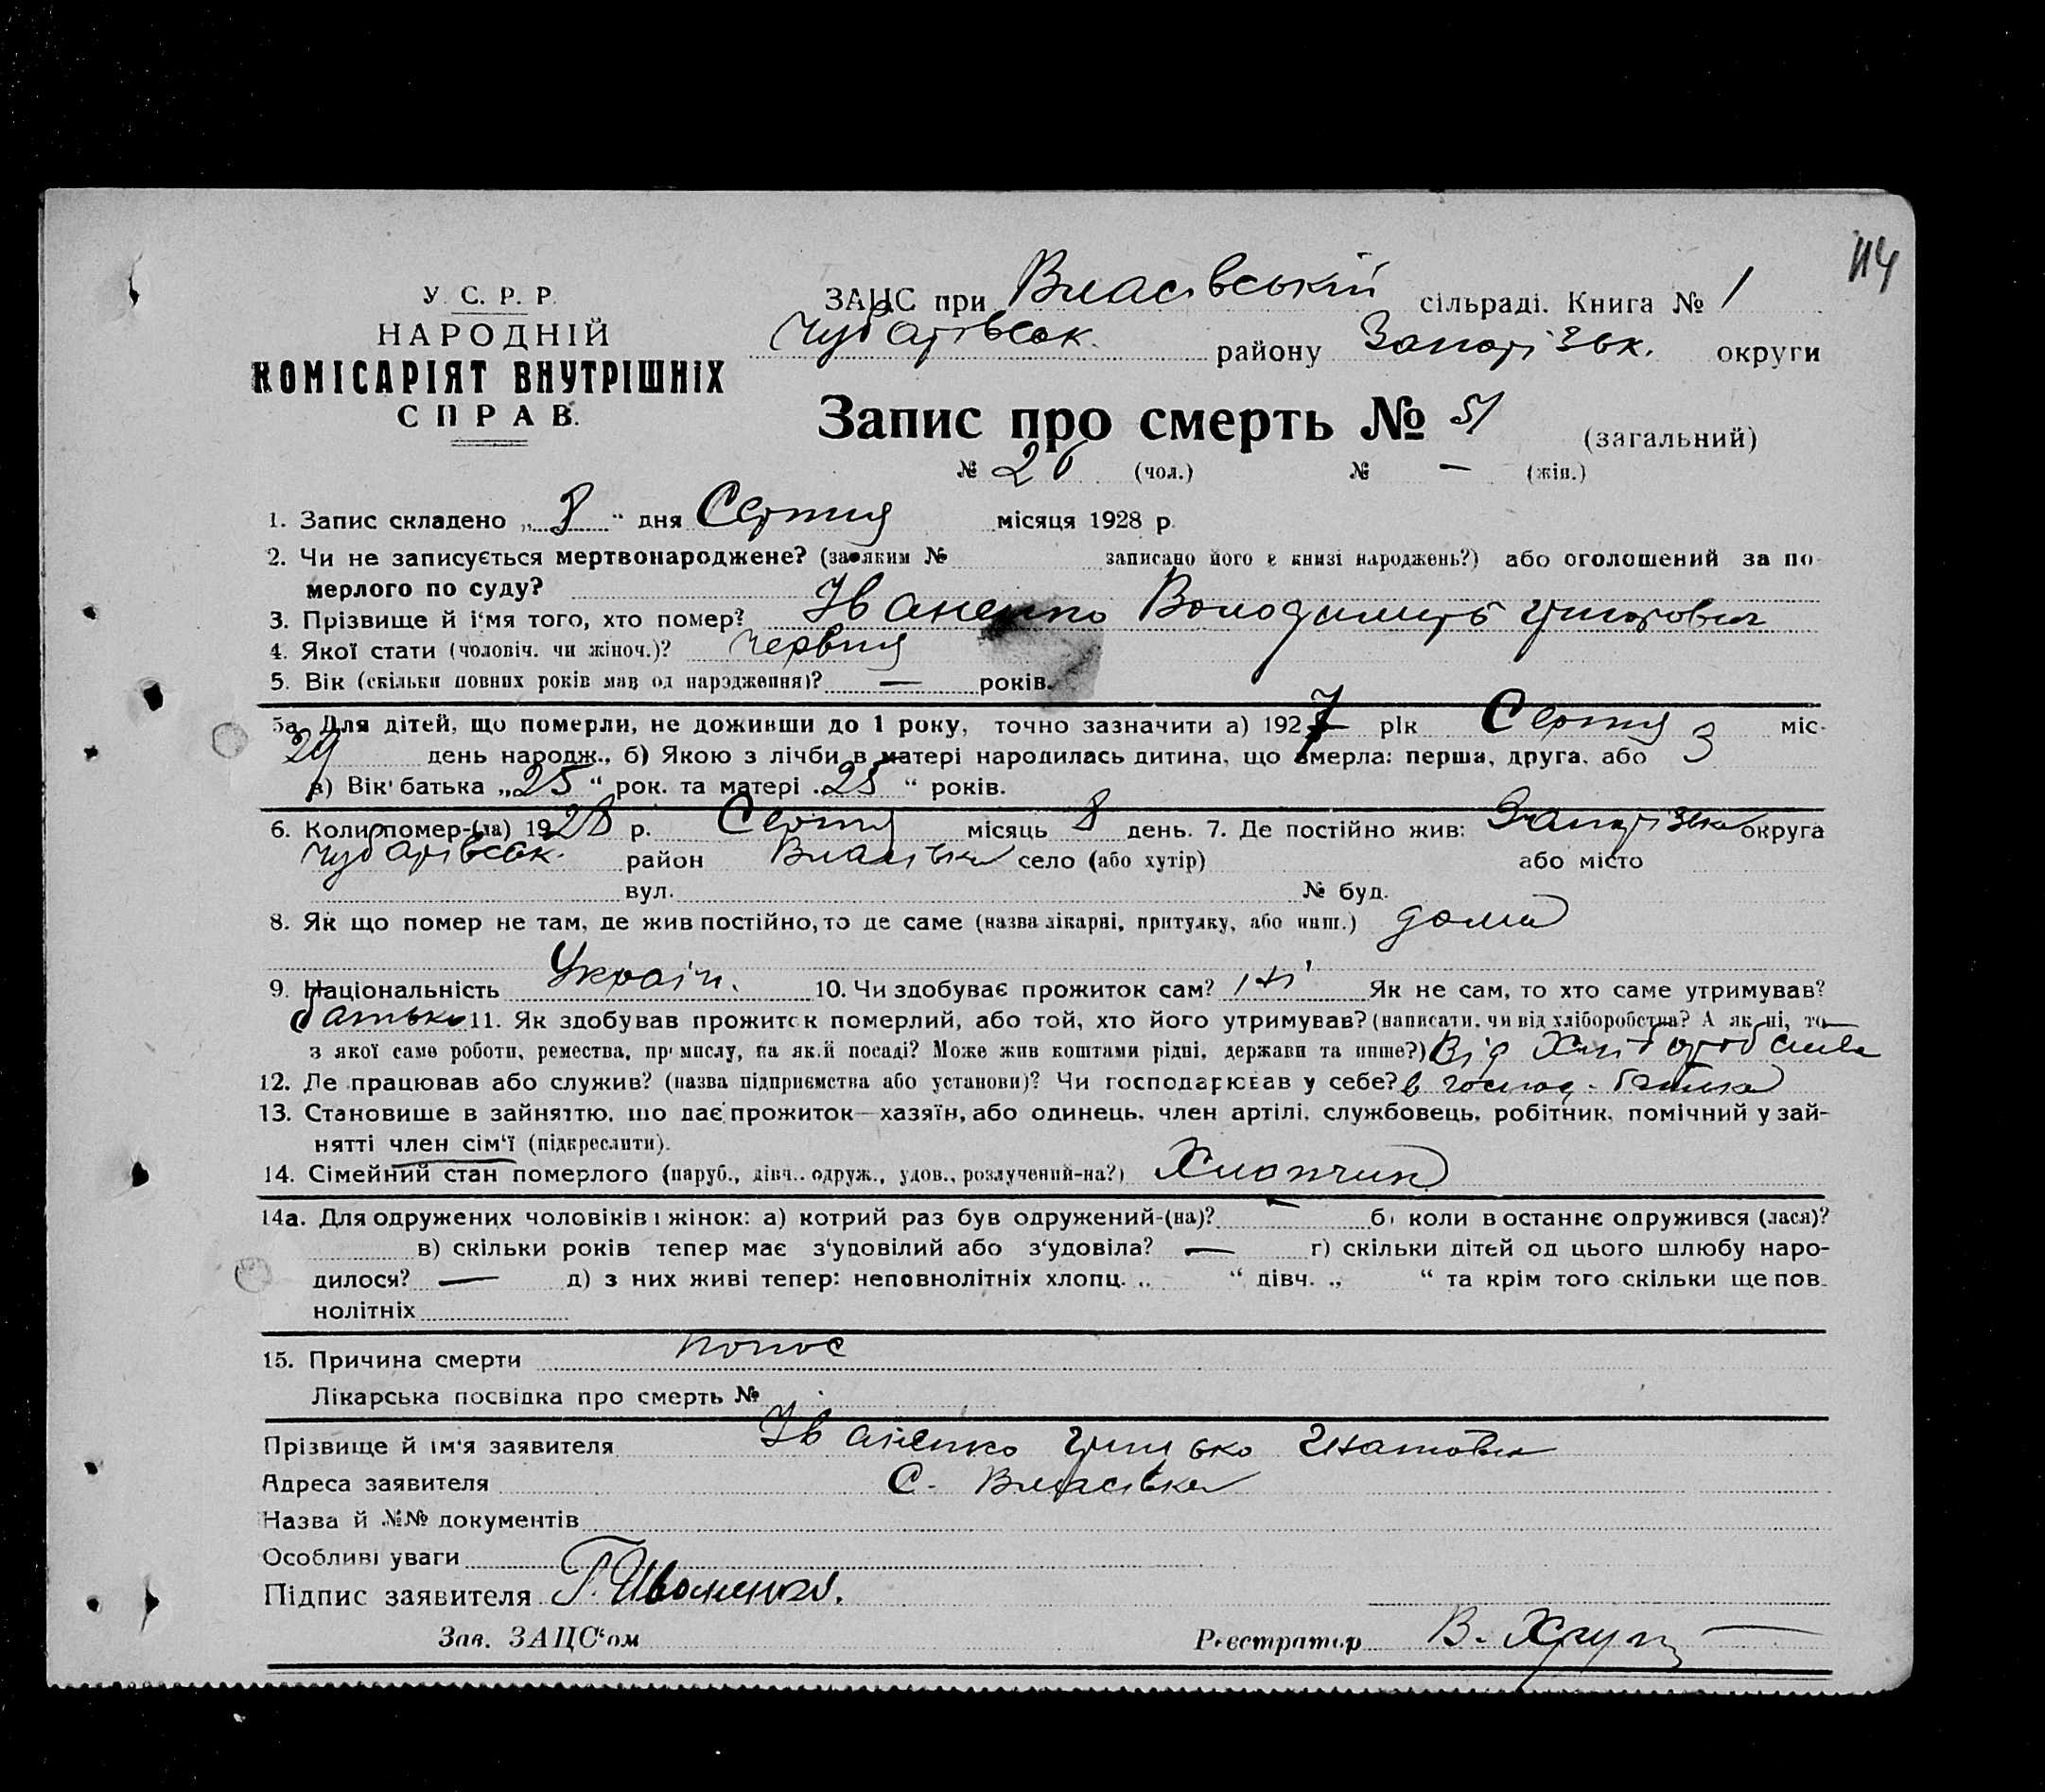 114
У. С. Р. Р.
НАРОДНІЙ
КОМІСАРІЯТ ВНУТРІШНІХ
СПРАВ.
ЗАЦС при Власівській сільраді. Книга № 1
Чубарівськ. району Запорізьк. округи
Запис про смерть № 51 (загальний)
№ 26 (чол.) № — (жін.)
1. Запис складено „ 8 “ дня Серпня місяця 1928 р.
2. Чи не записується мертвонароджене? (за яким № записано його в книзі народжень?) або оголошений за по-
мерлого по суду?
3. Прізвище й і‘мя того, хто помер? Іваненко Володимиръ Григорович
4. Якої стати (чоловіч. чи жіноч.)?
5. Вік (скільки повних років мав од народження)? — років.
5а. Для дітей, що померли, не доживши до 1 року, точно зазначити а) 1927 рік Серпня міс.
29 день народж., б) Якою з лічби в матері народилась дитина, що вмерла: перша, друга, або 3
в) Вік батька „25“ рок. та матері „25“ років.
6. Коли помер-(ла) 1928 р. Серпня місяць 8 день. 7. Де постійно жив: Запорізька округа
Чубарівськ. район Власівка село (або хутір) або місто
вул. № буд.
8. Як що помер не там, де жив постійно, то де саме (назва лікарні, притулку, або инш.) дома
9. Національність Україн. 10. Чи здобуває прожиток сам? ні Як не сам, то хто саме утримував?
батько 11. Як здобував прожиток померлий, або той, хто його утримував? (написати, чи від хліборобства? А як ні, то
з якої саме роботи, ремества, промислу, на якій посаді? Може жив коштами рідні, держави та инше?) Від Хліборобства
12. Де працював або служив? (назва підприємства або установи)? Чи господарював у себе? в господ. батька
13. Становище в зайняттю, що дає прожиток—хазяїн, або одинець, член артілі, службовець, робітник, помічний у зай-
нятті член сім‘ї (підкреслити).
14. Сімейний стан померлого (паруб., дівч., одруж., удов., розлучений-на?) Хлопчик
14а. Для одружених чоловіків і жінок: а) котрий раз був одружений-(на)? — б) коли в останнє одружився (лася)?
в) скільки років тепер має з‘удовілий або з‘удовіла? — г) скільки дітей од цього шлюбу наро-
дилося? — д) з них живі тепер: неповнолітніх хлопц. „ “ дівч. „ “ та крім того скільки ще пов-
нолітніх
15. Причина смерти понос
Лікарська посвідка про смерть №
Прізвище й ім‘я заявителя Іваненко Грицько Игнатович
Адреса заявителя С. Власівка
Назва й №№ документів
Особливі уваги
Підпис заявителя Г. Иваненко.
Зав. ЗАЦС‘ом Реєстратор В.